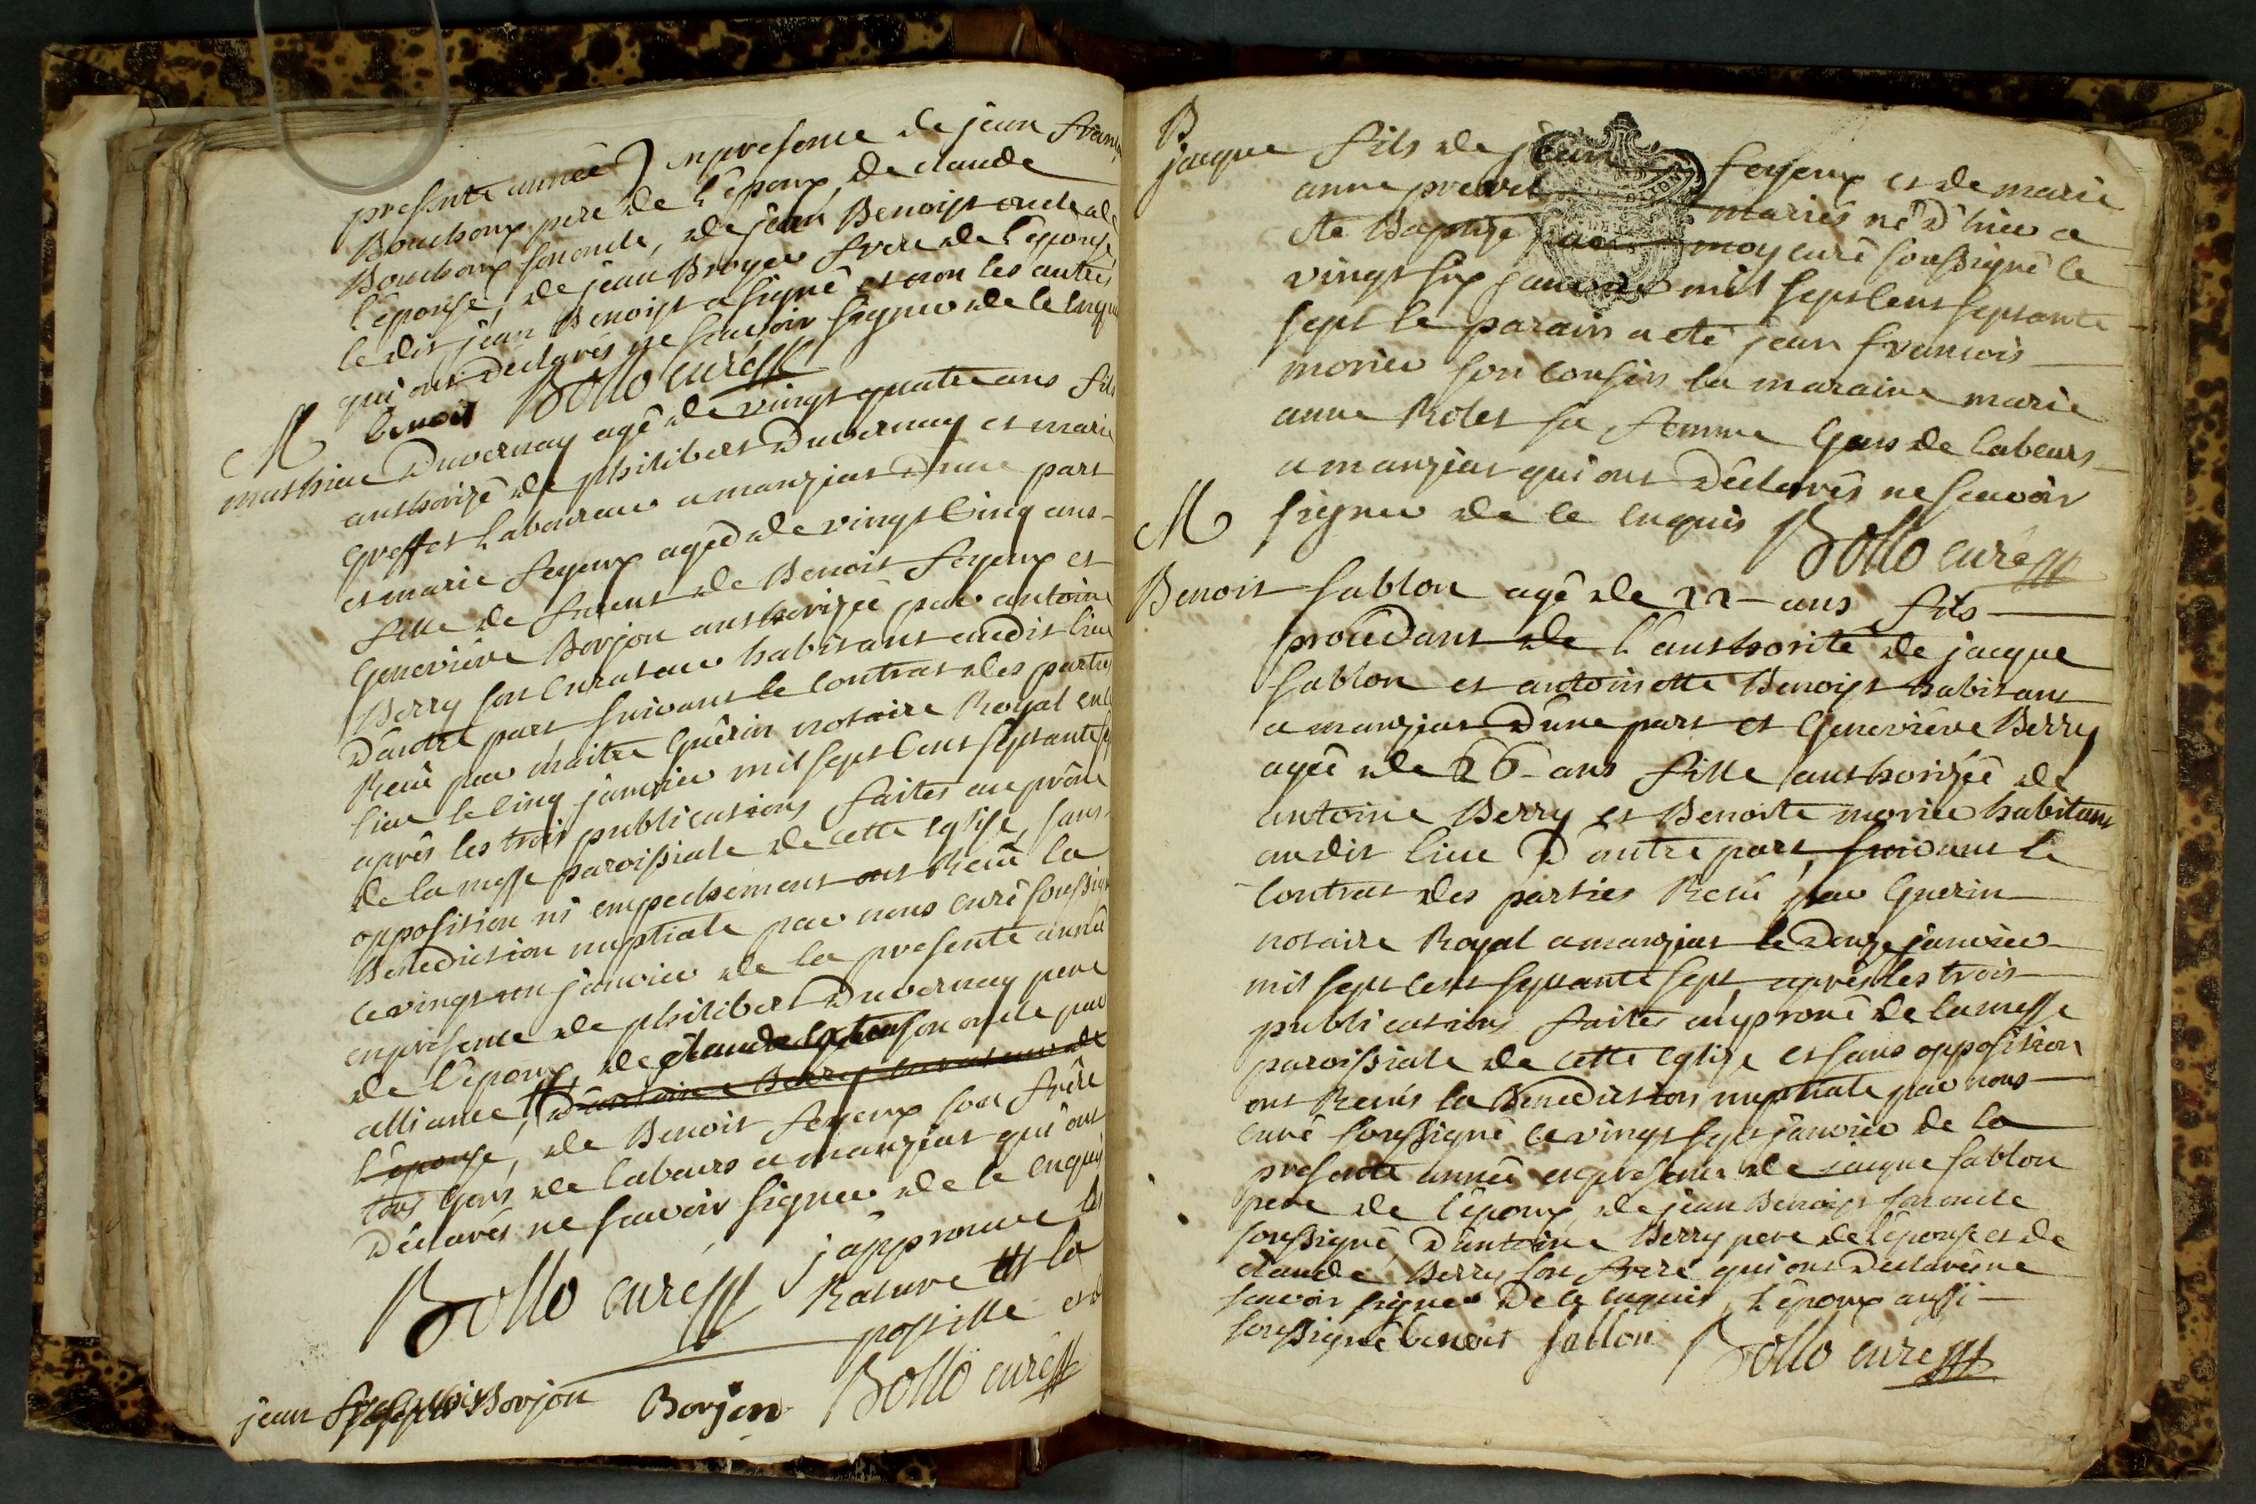 presente année) en presence de jean
Bouchoux pere de l'époux de claude
Bouchoux son oncle, de jean Benoist oncle de
l'épouse, de jean Broyer frere de l'épouse
le dit jean Benoist a signé et non les autres
qui ont declarés ne scavoir signer de ce enquis
benoit Bollo curé
M
mathieu Duvernay agé de vingt quatre ans fils
authorizé de philibert Duvernay et marie
Greffet Laboureur a manziat d'une part
et marie feyeux agée de vingt cinq ans
fille de furent de Benoit feyeux et
Genevieve Borjon authorizée par antoine
Berry son curateur habitant audit lieu
d'autre part suivant le contrat des parties
Receu par maitre Guérin notaire Royal en ce
lieu le cinq janvier mil sept cent septante
après les trois publications faites au prône
de la messe paroissiale de cette eglise, sans
opposition ni empechement ont Receu la
Benediction nuptiale par nous curé soussigné
ce vingt un janvier de la presente année
en presence de philibert Duvernay pere
de l'époux, de claude son oncle par
alliance, d'antoine Berry curateur de
l'épouse, de Benoit feyeux son frère
tous Gens de labeurs a manziat qui ont
déclarés ne scavoir signer de ce enquis
Bollo curé j'approuve les
Rature et la
postille
jean Borjon Borjon Bollo curé
B
jacque fils de jean feyeux et de marie
anne prevel mariés né d'hier a
été Baptizé par moy curé soussigné le
vingt six janvier mil sept cent septante
sept le parain a été jean francois
morier son cousin la maraine marie
anne Rolet sa femme Gens de labeurs
a manziat qui ont déclarés ne scavoir
signer de ce enquis Bollo curé
M
Benoit sablon agé de 22 ans fils
procedant de l'authorité de jacque
sablon et antoinette Benoist habitans
a manziat d'une part et Genevieve Berry
agée de 26 ans fille authorizée de
antoine Berry et Benoite morier habitans
audit lieu d'autre part, suivant le
contrat des parties Receu par Guerin
notaire Royal a manziat le douze janvier
mil sept cent septante sept, après les trois
publications faites au prone de la messe
paroissiale de cette eglise et sans opposition
ont Recüs la Benediction nuptiale par nous
curé soussigné ce vingt sept janvier de la
presente année en presence de jacque sablon
pere de l'époux, de jean Benoist son oncle
soussigné, d'antoine Berry pere de l'épouse et de
claude Berry son frere qui ont declarés ne
scavoir signer de ce enquis, L'époux aussi
soussigné benoit sablon Bollo curé